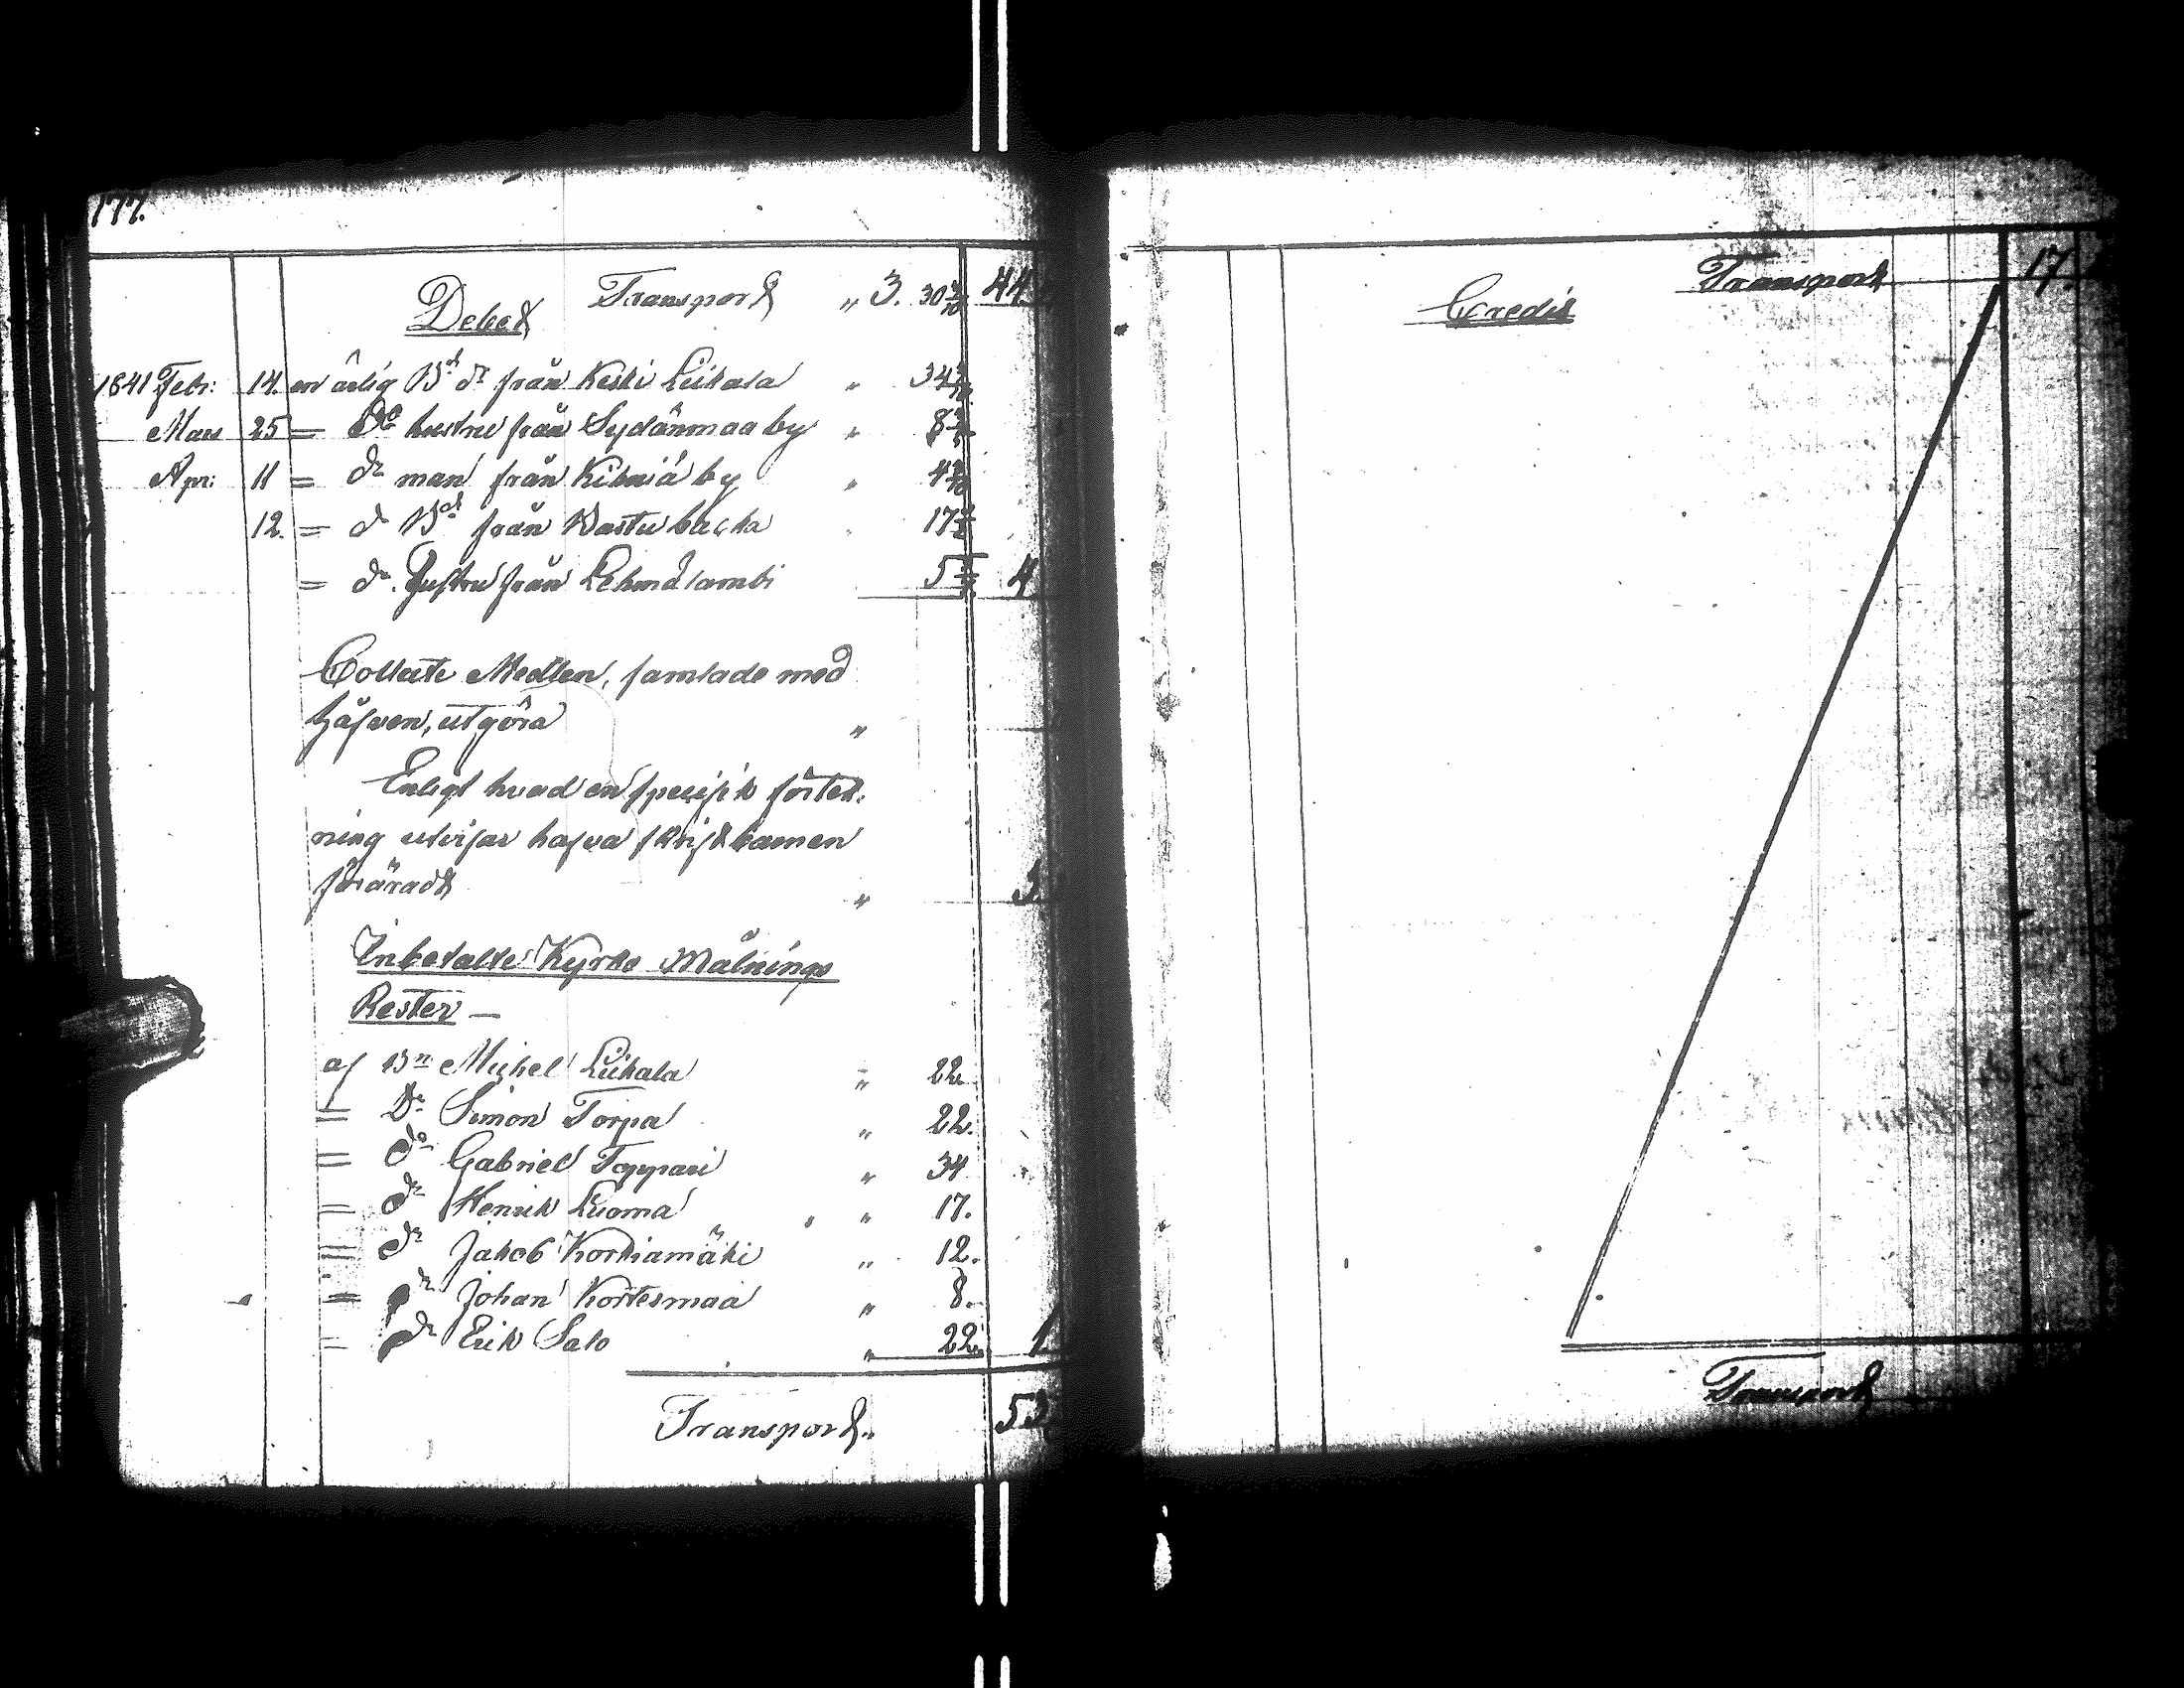 177.
Debet Transport " 3. 30 44
1841 Febr: 14. en ärlig Bd dr från Keski Liikala " 34
Mars 25 = do hustru från Sydänmaa by " 8
Apr: 11 = do man från Kihniä by " 4
12. = do Bd från Bastubacka " 17
= do. hustru från Lehmälambi 5 4
Collecte Medlen, samlade med
håfven, utgöra "
Enligt hvad en specifik förtek-
ning utvisar hafva skriftbarnen
föräradt " 3
Inbetalte Kyrko Målnings
Rester —
af Bn Michel Liikala " 22.
= Do Simon Torpa " 22.
= do Gabriel Toppari " 34
= do Henrik Luoma " 17.
= do Jakob Korkiamäki " 12.
= do Johan Kortesmaa " 8.
= do Erik Salo " 22. 1
Transport " 53
Credit Transport 17
Transport